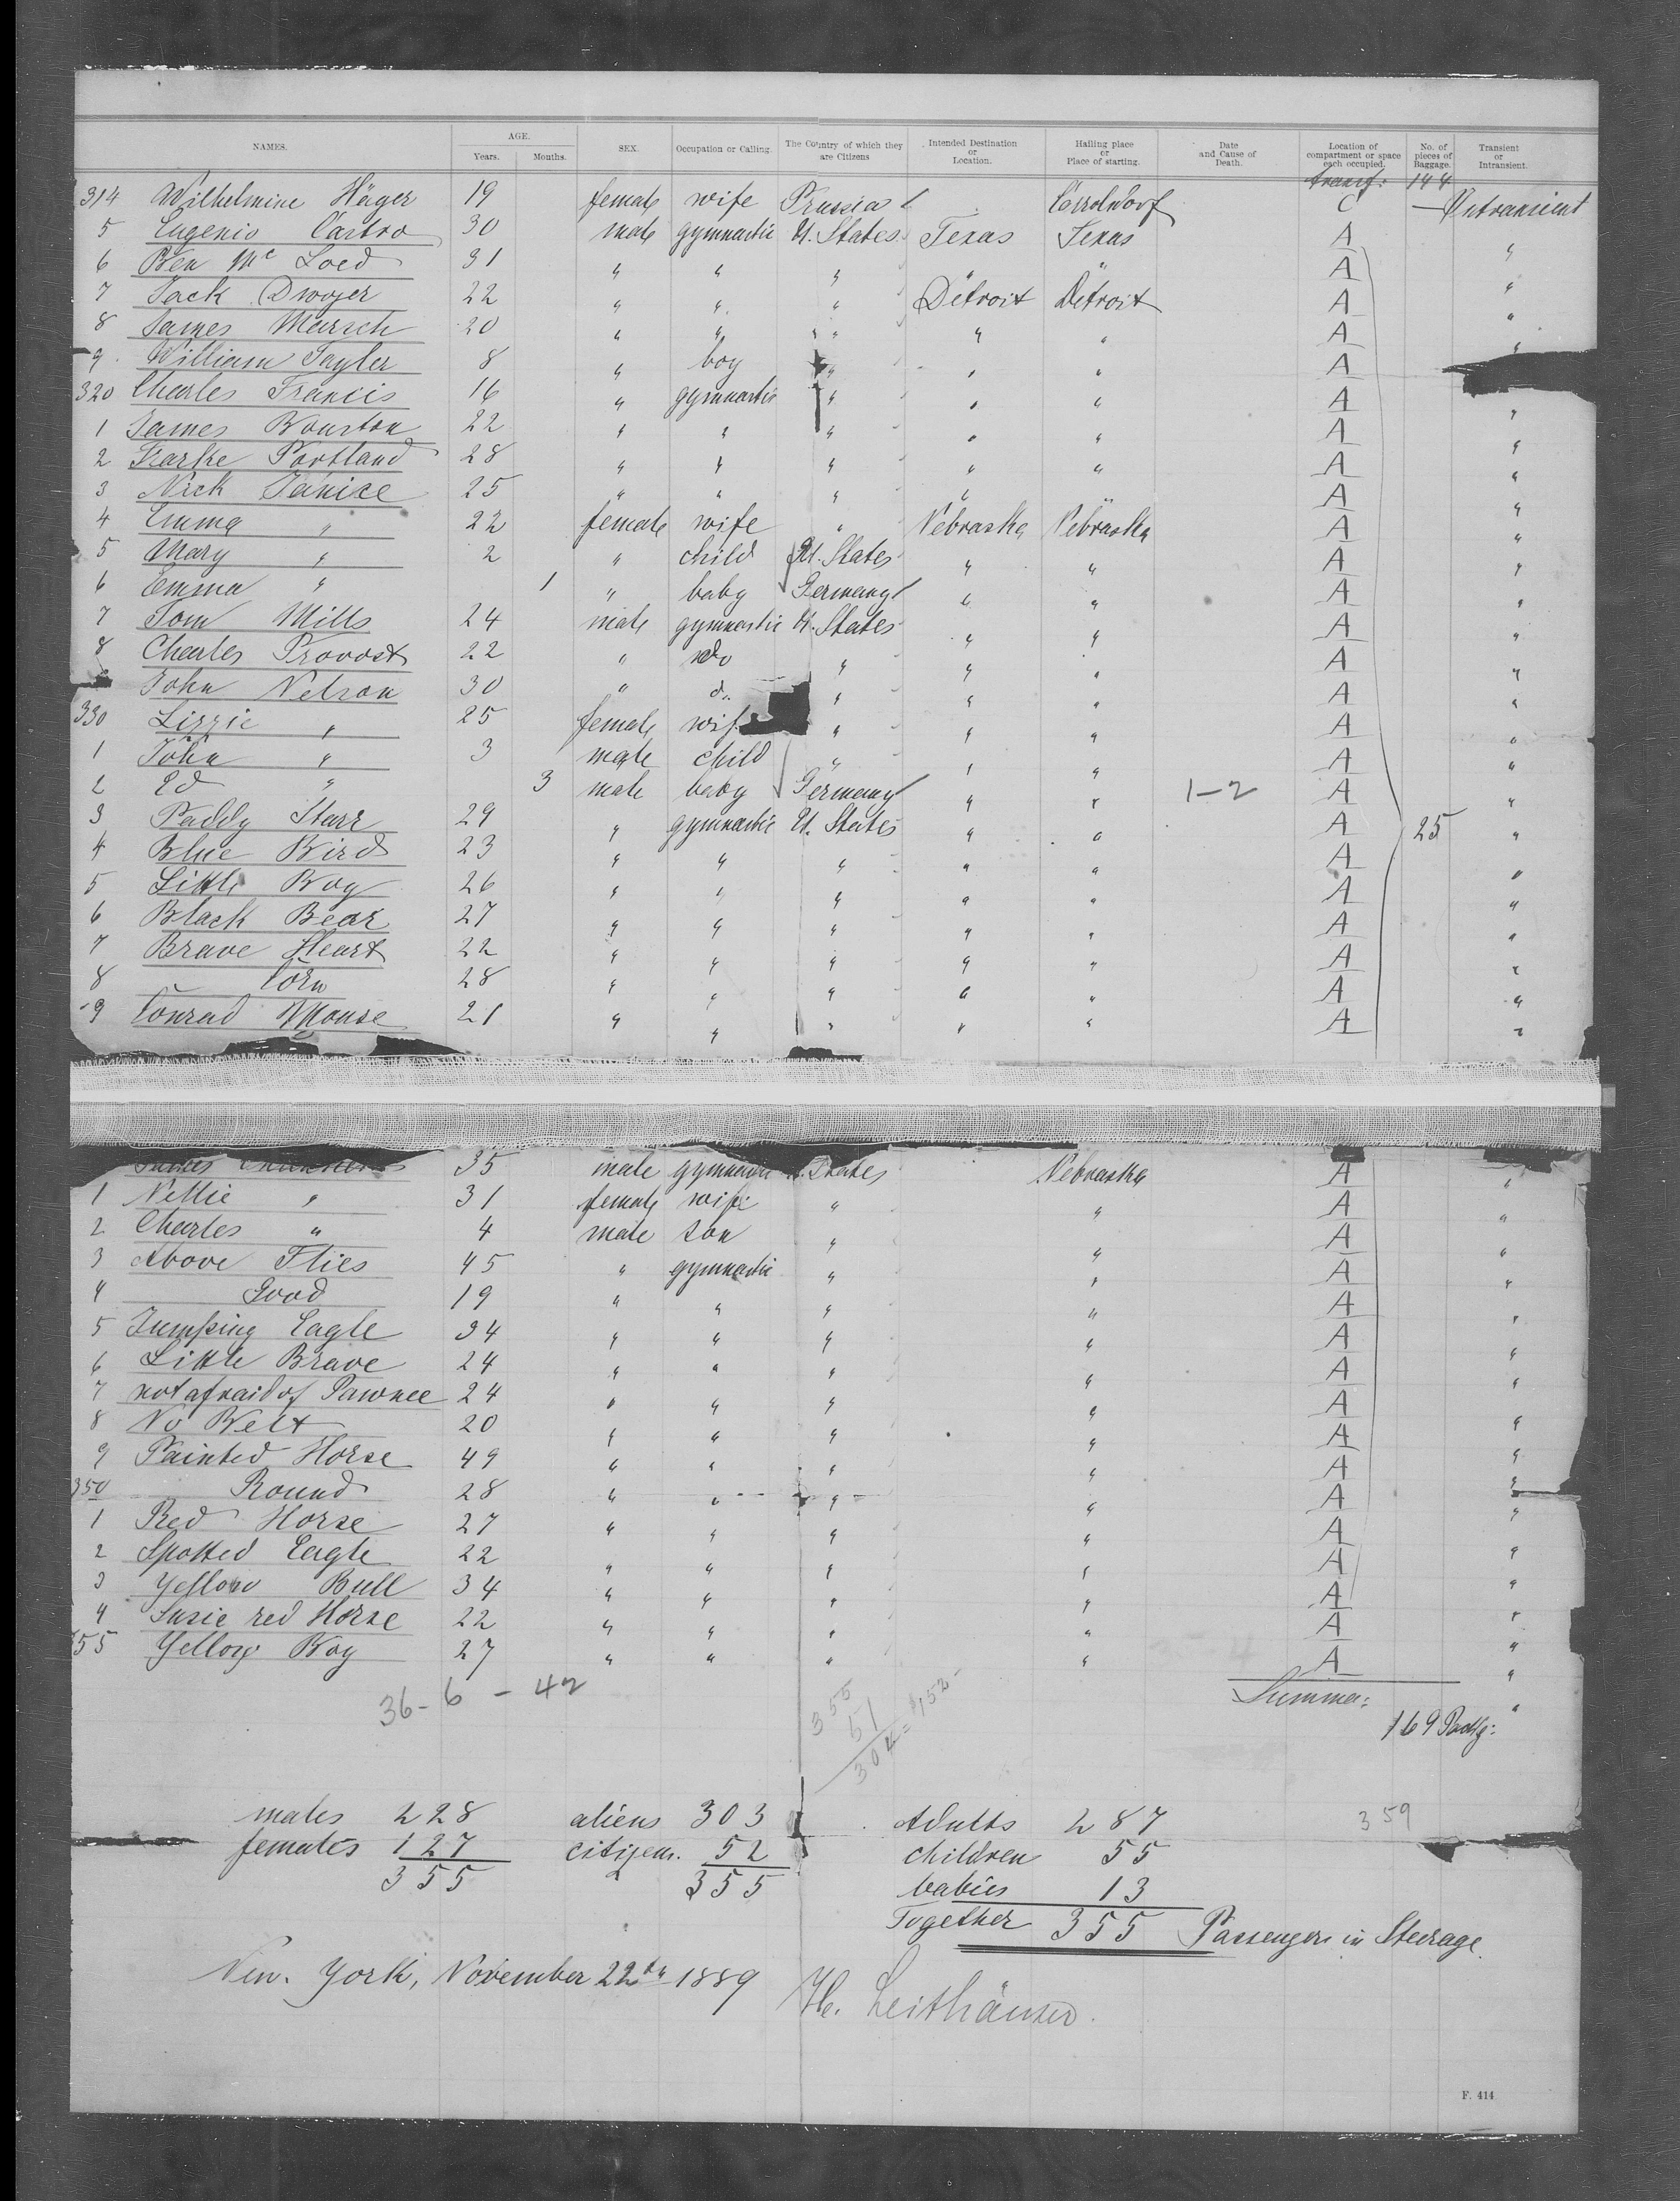 NAMES. AGE. Years. Months. SEX. Occupation or Calling. The Country of which they are Citizens Intended Destination or Location. Hailing place or Place of starting. Date and Cause of Death. Location of compartment or space each occupied. No. of pieces of Baggage. Transient or Intransient.
transf: 144
314 Wilhelmine Häger 19 female wife Prussia C Intransient
5 Eugenio Castro 30 male gymnastic U. States Texas Texas A "
6 Ben Mc Loed 31 " " " " A "
7 Jack Dwyer 22 " " " Detroit Detroit A "
8 James Marsch 20 " " " " " A "
9 William Tayler 8 " boy " " " A
320 Charles Francis 16 " gymnastic " " " A "
1 James Bourton 22 " " " " " A "
2 Franke Portland 28 " " " " " A "
3 Nick Janise 25 " " " " " A "
4 Emma " 22 female wife " Nebraska Nebraska A "
5 Mary " 2 " child U. States " " A "
6 Emma " 1 " baby Germany " " A "
7 Tom Mills 24 male gymnastic U. States " " A "
8 Charles Provost 22 " do " " " A "
9 John Nelson 30 " d. " " " A "
330 Lizzie " 25 female wif " " " A "
1 John " 3 male child " " " A "
2 Ed " 3 male baby Germany " " 1-2 A "
3 Paddy Starr 29 " gymnastic U. States " " A 25 "
4 Blue Bird 23 " " " " " A "
5 Little Boy 26 " " " " " A "
6 Black Bear 27 " " " " " A "
7 Brave Heart 22 " " " " " A "
8 Corn 28 " " " " " A "
9 Conrad Mouse 21 " " " " " A "
James 35 male gymnastic U. States Nebraska A "
1 Nellie " 31 female wife " " A "
2 Charles " 4 male son " " A "
3 Above Flies 45 " gymnastic " " A "
4 Good 19 " " " " A "
5 Jumping Eagle 34 " " " " A "
6 Little Brave 24 " " " " A "
7 not afraid of Pawnee 24 " " " " A "
8 No Belt 20 " " " " A "
9 Painted Horse 49 " " " " A "
350 Round 28 " " " " A "
1 Red Horse 27 " " " " A "
2 Spotted Eagle 22 " " " " A "
3 Yellow Bull 34 " " " " A "
4 Susie red Horse 22 " " " " A "
355 Yellow Boy 27 " " " " A "
36-6-42
355
51
304 = $152-
Summa:
169 Packg:
males 228 aliens 303 Adults 287 359
females 127 citizens. 52 children 55
355 355 babies 13
Together 355 Passengers in Steerage.
New York, November 22th 1889 H. Leithäuser.
F. 414